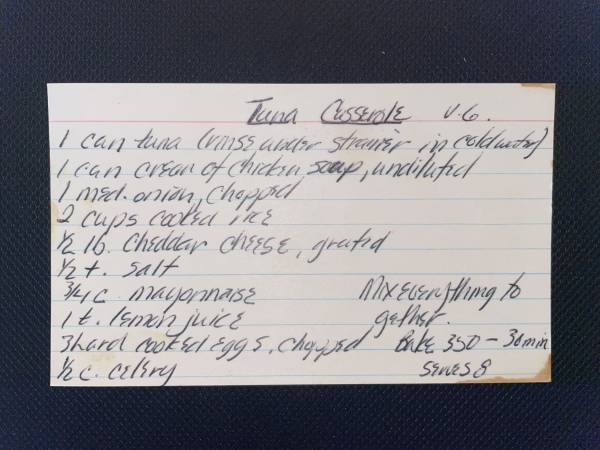 Tuna Casserole V.G.
1 can tuna (rinse under strainer in cold water)
1 can cream of chicken soup, undiluted
1 med. onion, chopped
2 cups cooked rice
1/2 lb. cheddar cheese, grated
1/2 t. salt
3/4 c. mayonnaise
1 t. lemon juice
3 hard cooked eggs, chopped
1/2 c. celery
Mix everything to
gether.
Bake 350 - 30 min
Serves 8